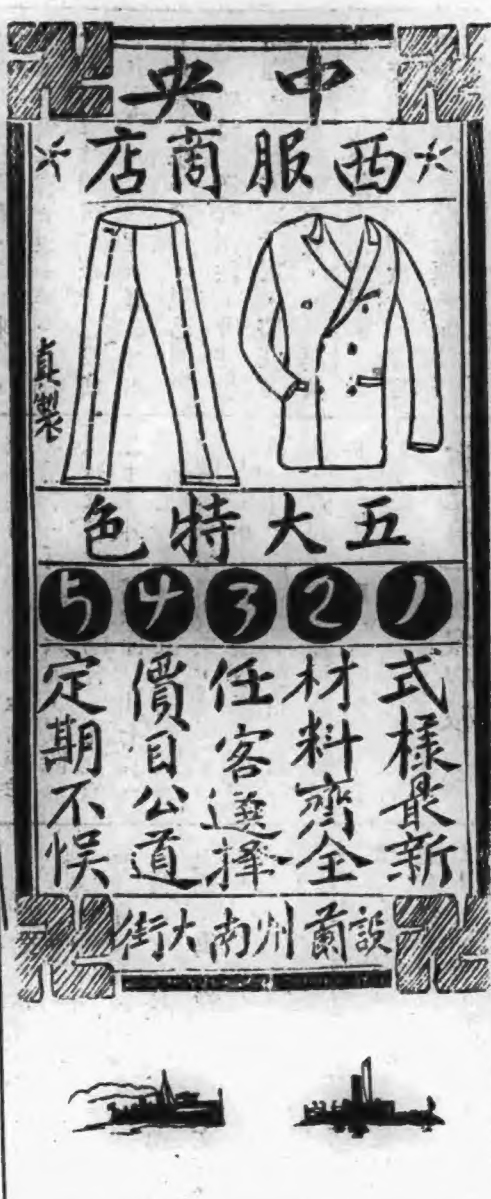 中央
西服商店
真製
五大特色
1 2 3 4 5
式樣最新
材料齊全
任客選擇
價目公道
定期不悮
設蘭州南大街